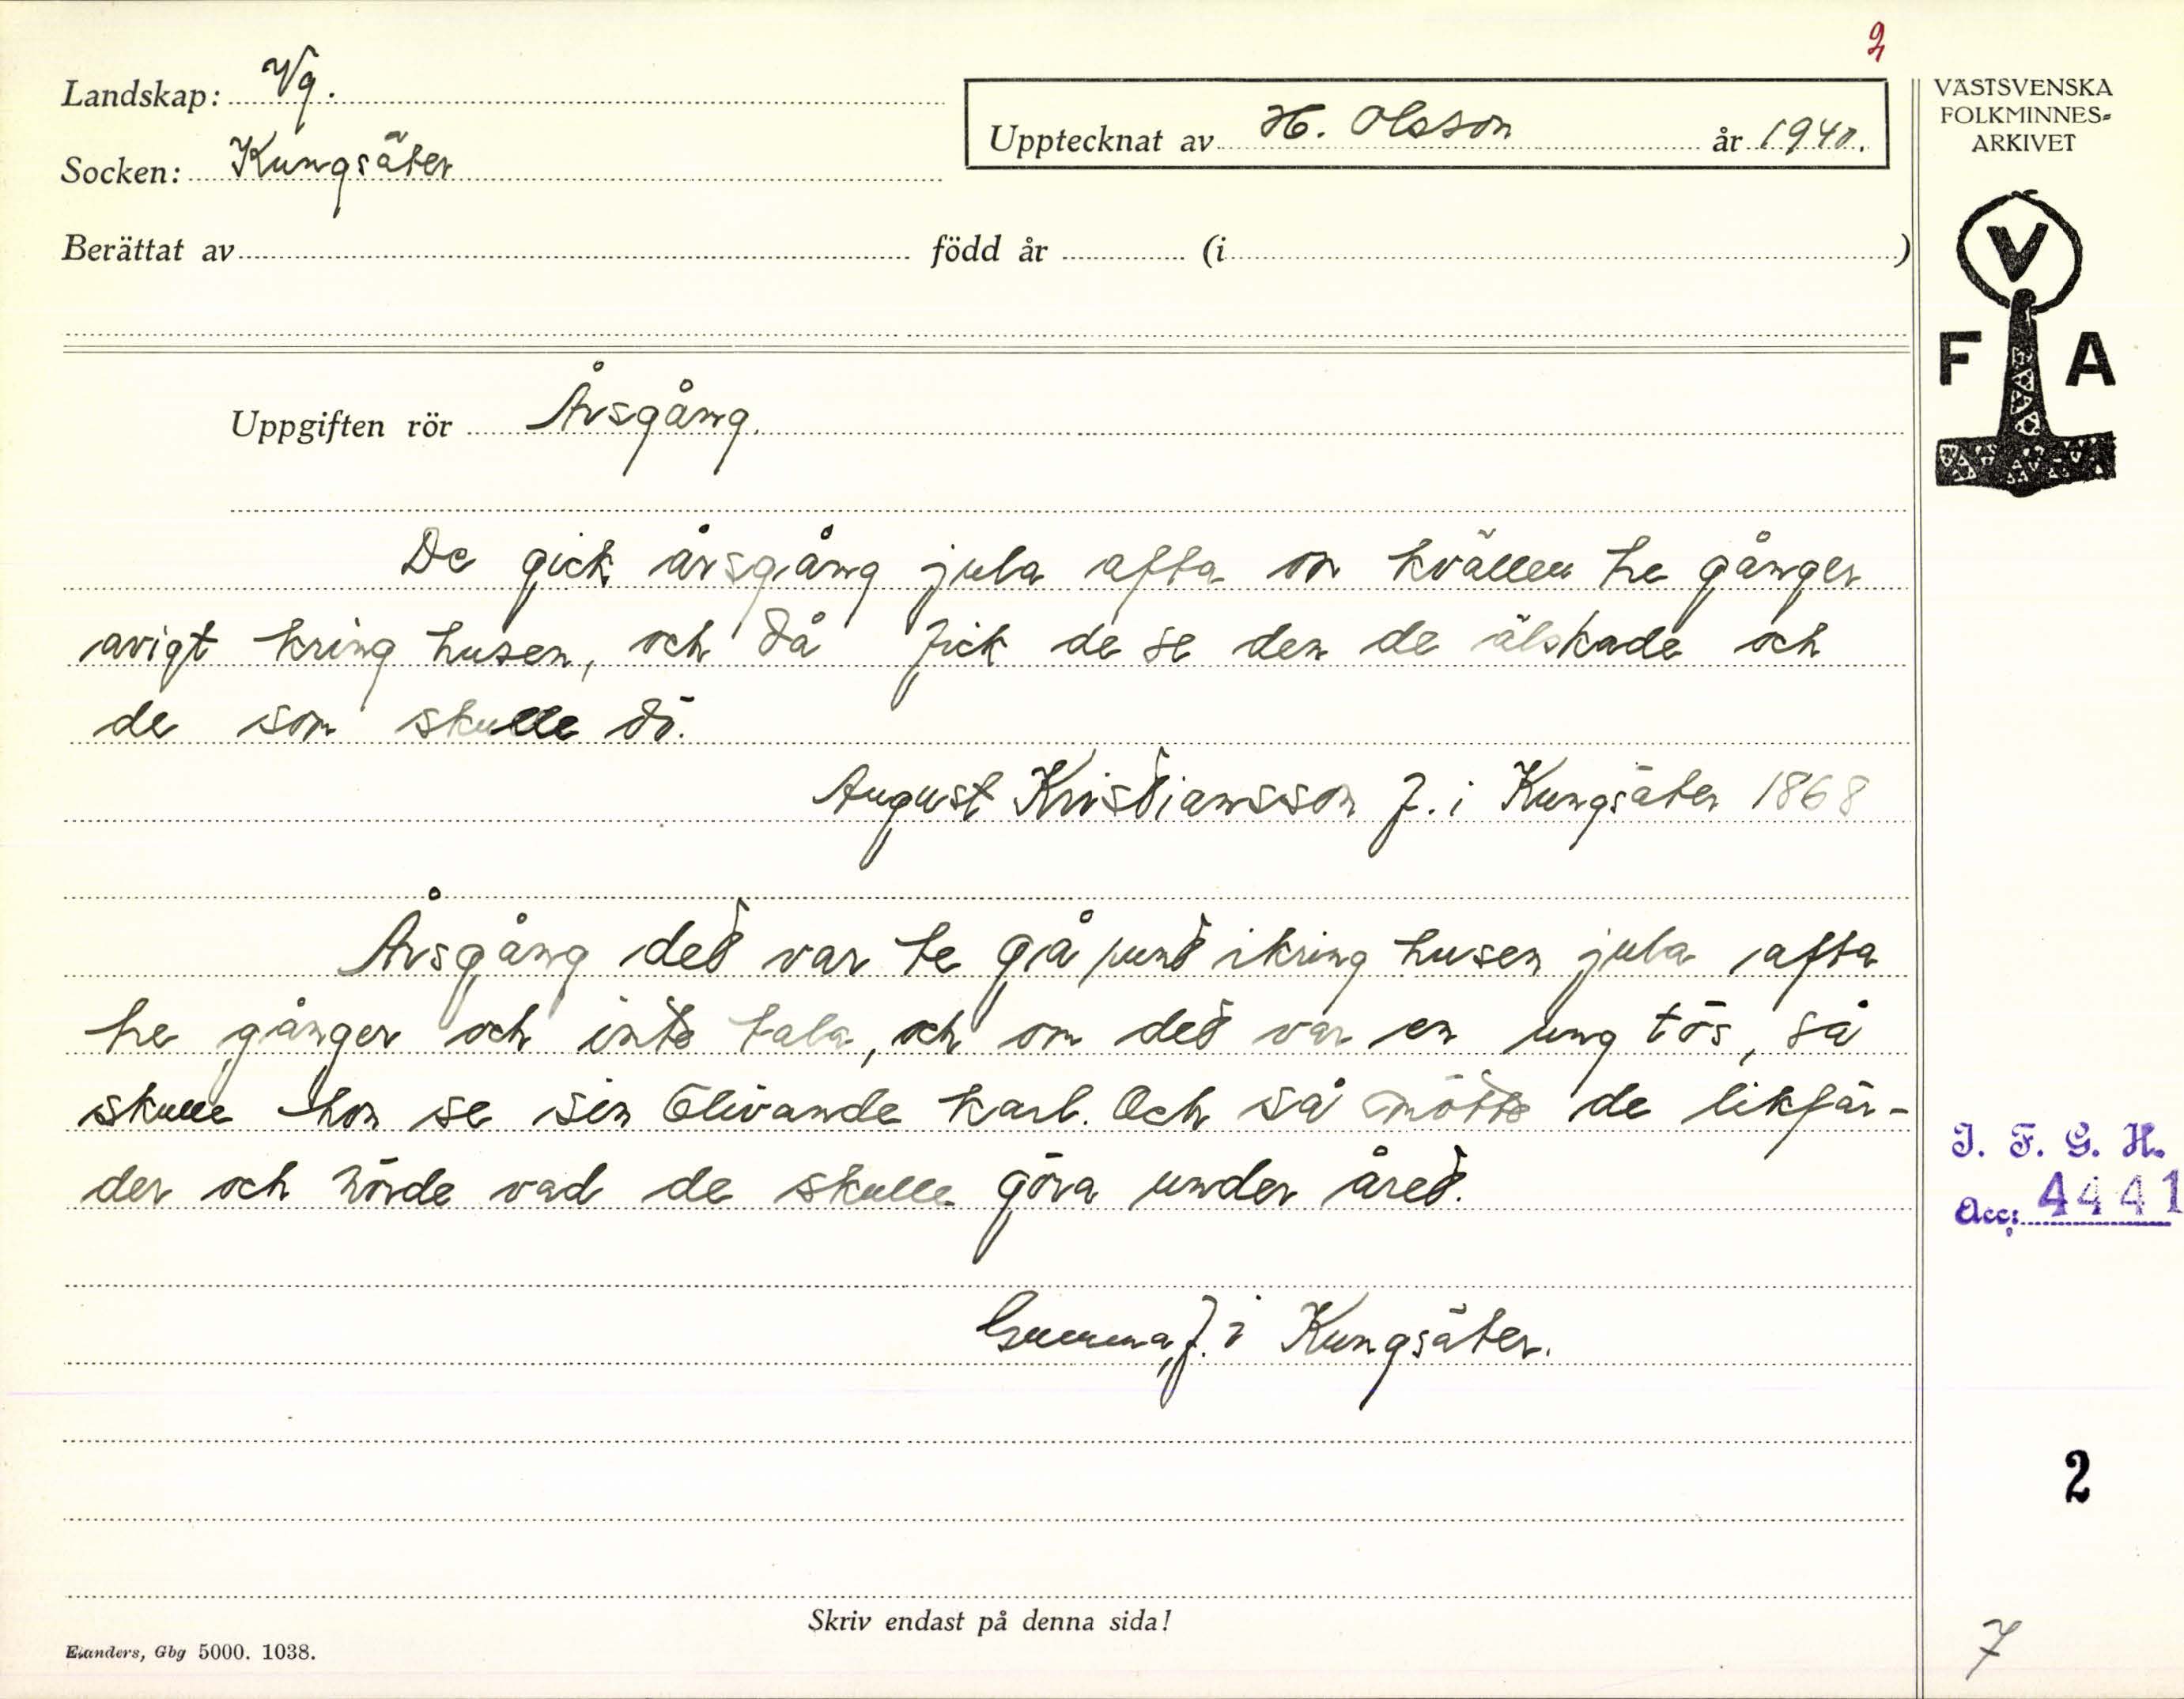 2
Landskap: Vg.
Upptecknat av H. Olsson år 1940.
Socken: Kungsäter
Berättat av född år (i )
VÄSTSVENSKA
FOLKMINNES=
ARKIVET
V
F A
Uppgiften rör Årsgång.
De gick årsgång jula afta om kvällen tre gånger
avigt kring husen, och då fick de se den de älskade och
de som skulle dö.
August Kristiansson f. i Kungsäter 1868
Årsgång det var te gå runt ikring husen jula afta
tre gånger och inte tala, och om det var en ung tös, så
skulle hon se sin blivande karl. Och så mötte de likfär-
der och hörde vad de skulle göra under året.
f. i Kungsäter.
I. F. G. H.
Acc: 4441
2
Skriv endast på denna sida!
Elanders, Gbg 5000. 1038.
7